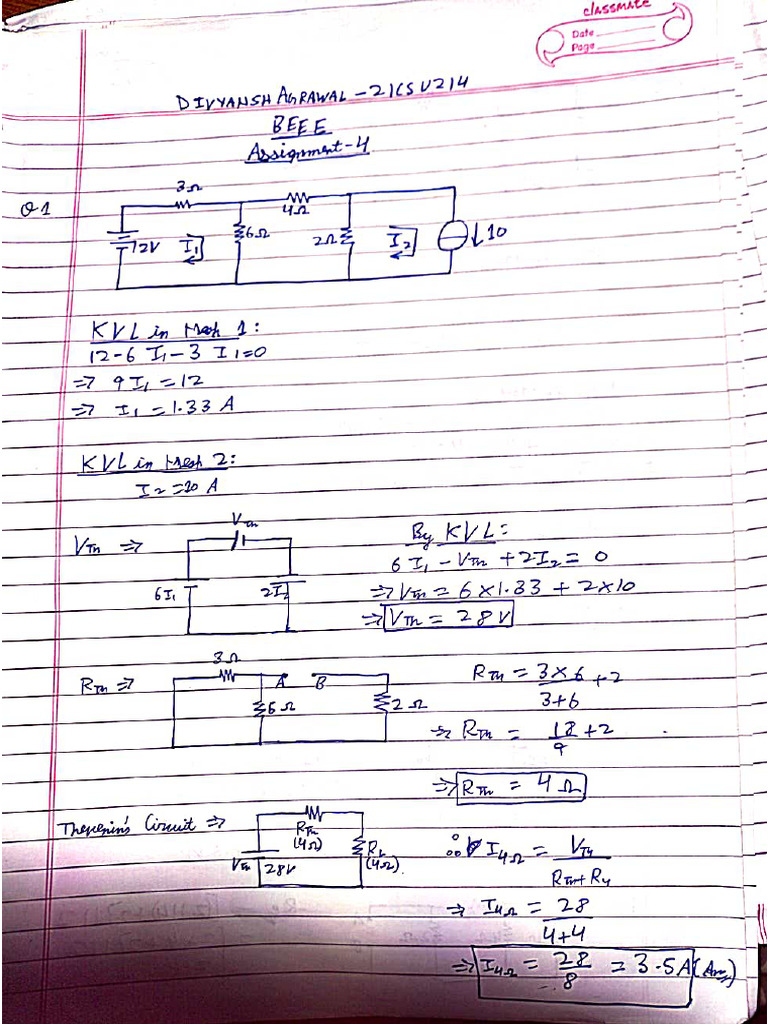 classmate
Date
Page
DIVYANSH AGRAWAL - 21CSU214
BEEE
Assignment-4
Q1
3Ω
4Ω
12V
I₁
6Ω
2Ω
I₂
↓10
KVL in Mesh 1:
12-6 I₁-3 I₁=0
=> 9I₁ = 12
=> I₁ = 1.33 A
KVL in Mesh 2:
I₂ = 10 A
VTh =>
VTh
6I₁
2I₂
By KVL:
6I₁ - VTh + 2I₂ = 0
=> VTh = 6×1.33 + 2×10
=> VTh = 28V
RTh =>
3Ω
A
B
6Ω
2Ω
RTh = 3×6/3+6 +2
=> RTh = 18/9 +2
=> RTh = 4Ω
Thevenin's Circuit =>
RTh
(4Ω)
VTh
28V
RL
(4Ω)
∴ I4Ω = VTh/RTh+R4
=> I4Ω = 28/4+4
=> I4Ω = 28/8 = 3.5A (Ans)